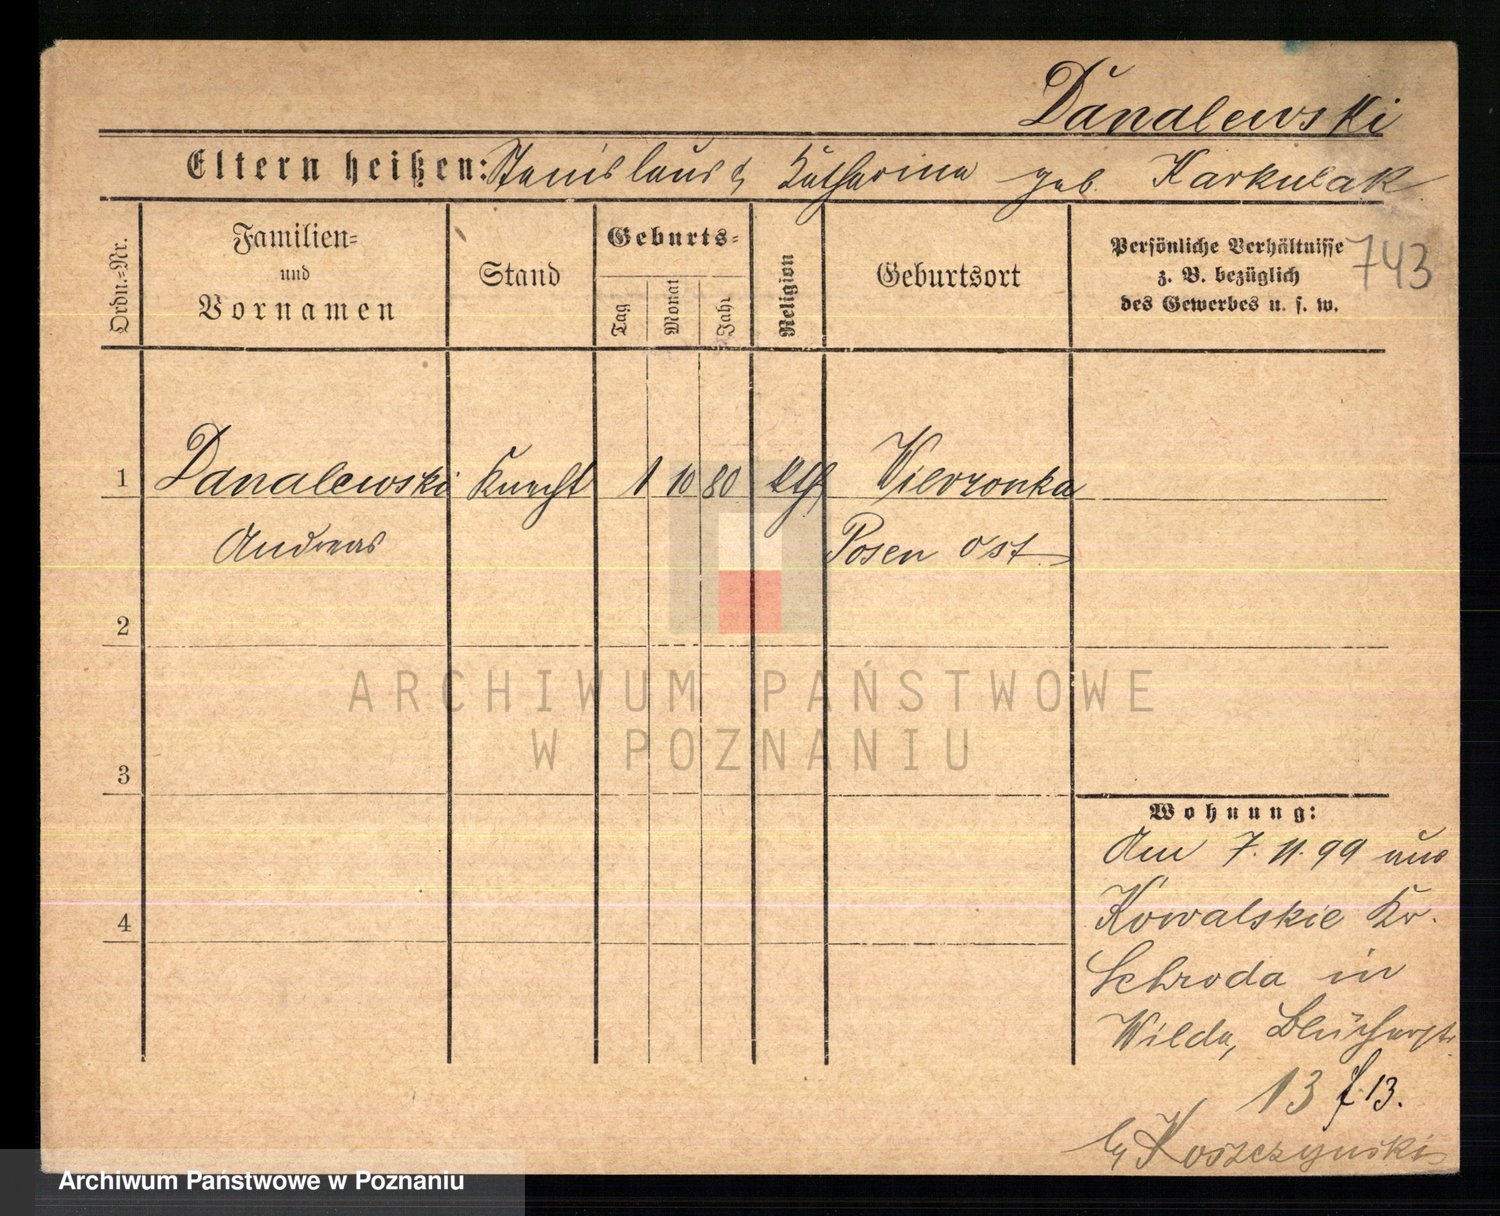 Danalewski
Eltern heißen: Stanislaus & Katharina geb. Karkulak
Ordn.=Nr.
Familien=
und
Vornamen
Stand
Geburts=
Tag
Monat
Jahr
Religion
Geburtsort
Persönliche Verhältnisse
z. B. bezüglich
des Gewerbes u. s. w.
743
1 Danalewski Knecht 1 10 80 kth Wierzonka
Andreas Posen Ost
2
ARCHIWUM PAŃSTWOWE
W POZNANIU
3
Wohnung:
Am 7. 11. 99 aus
4
Kowalskie Kr.
Schroda in
Wilda, Blücherstr.
13 f 13.
by Koszczynski
Archiwum Państwowe w Poznaniu